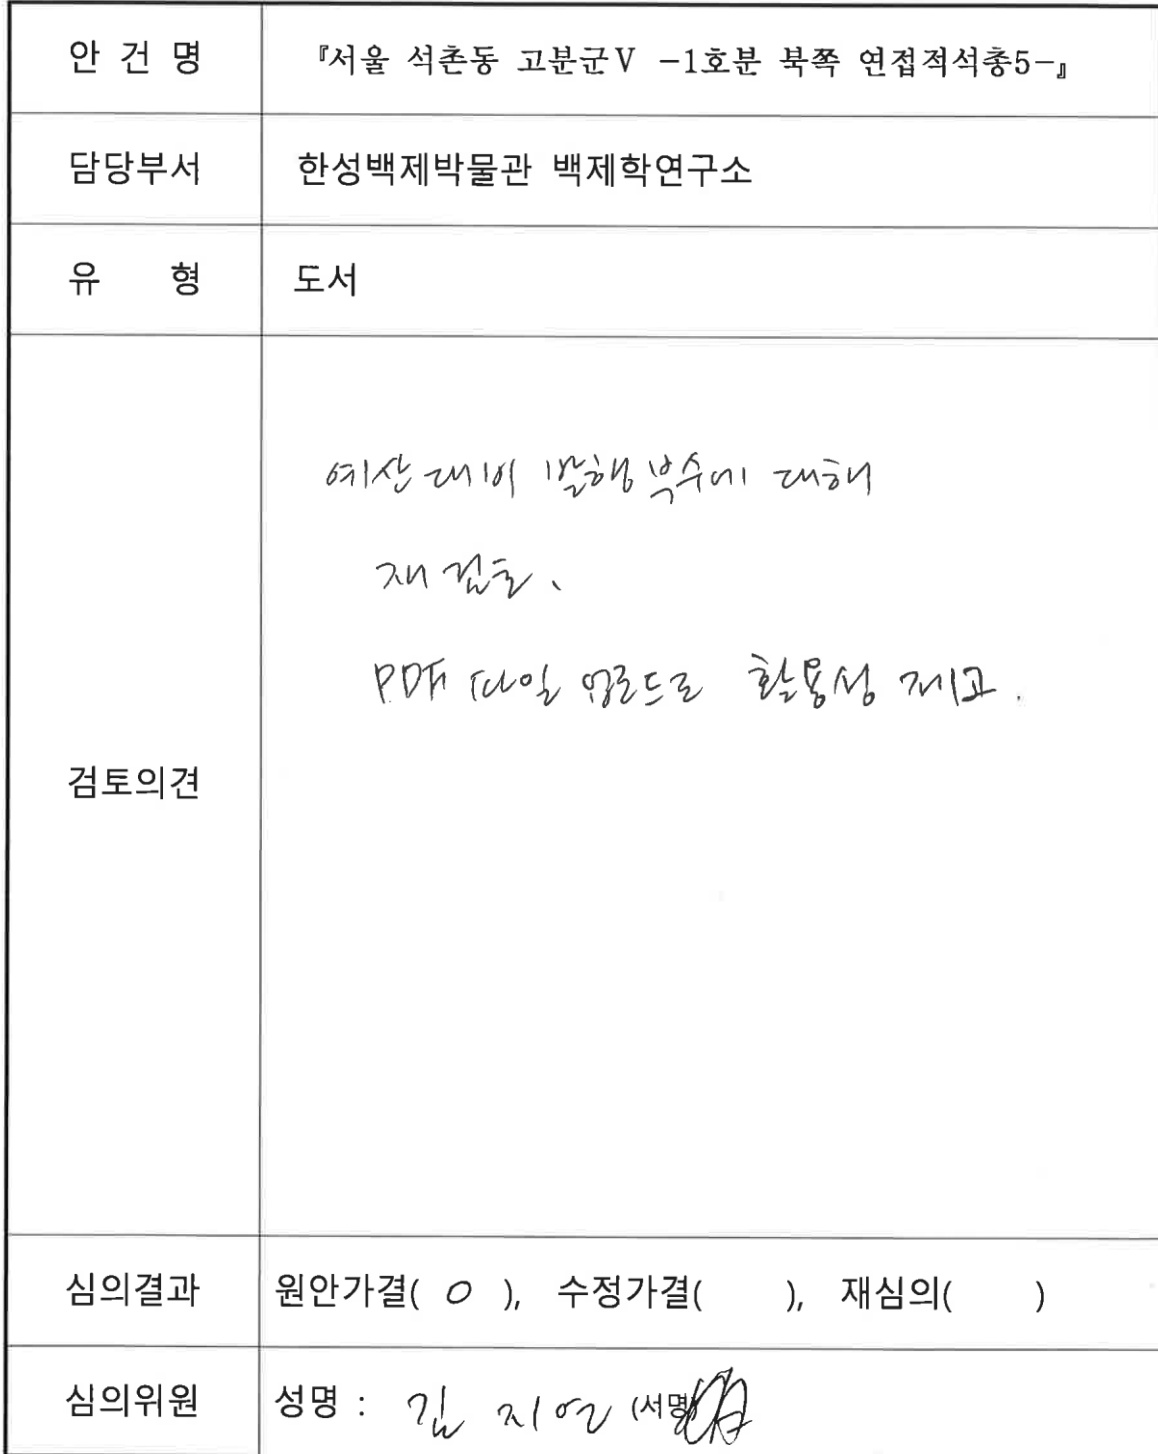 안 건 명 『서울 석촌동 고분군Ⅴ -1호분 북쪽 연접적석총5-』
담당부서 한성백제박물관 백제학연구소
유 형 도서
검토의견
예산 대비 발행 부수에 대해
재 검토.
PDF 파일 업로드로 활용성 제고.
심의결과 원안가결( O ), 수정가결( ), 재심의( )
심의위원 성명 : 김 지연 (서명)